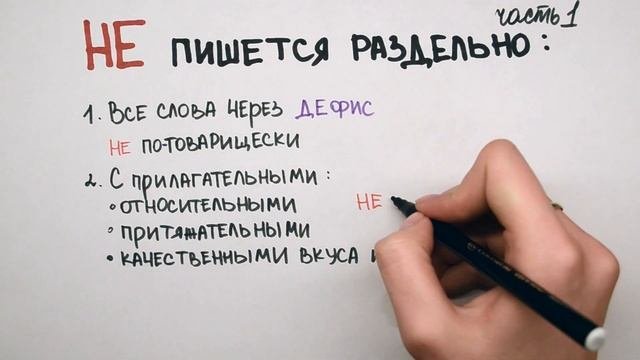 часть 1
НЕ ПИШЕТСЯ РАЗДЕЛЬНО:
1. ВСЕ СЛОВА ЧЕРЕЗ ДЕФИС
НЕ ПО-ТОВАРИЩЕСКИ
2. С ПРИЛАГАТЕЛЬНЫМИ:
• ОТНОСИТЕЛЬНЫМИ НЕ
• ПРИТЯЖАТЕЛЬНЫМИ
• КАЧЕСТВЕННЫМИ ВКУСА И